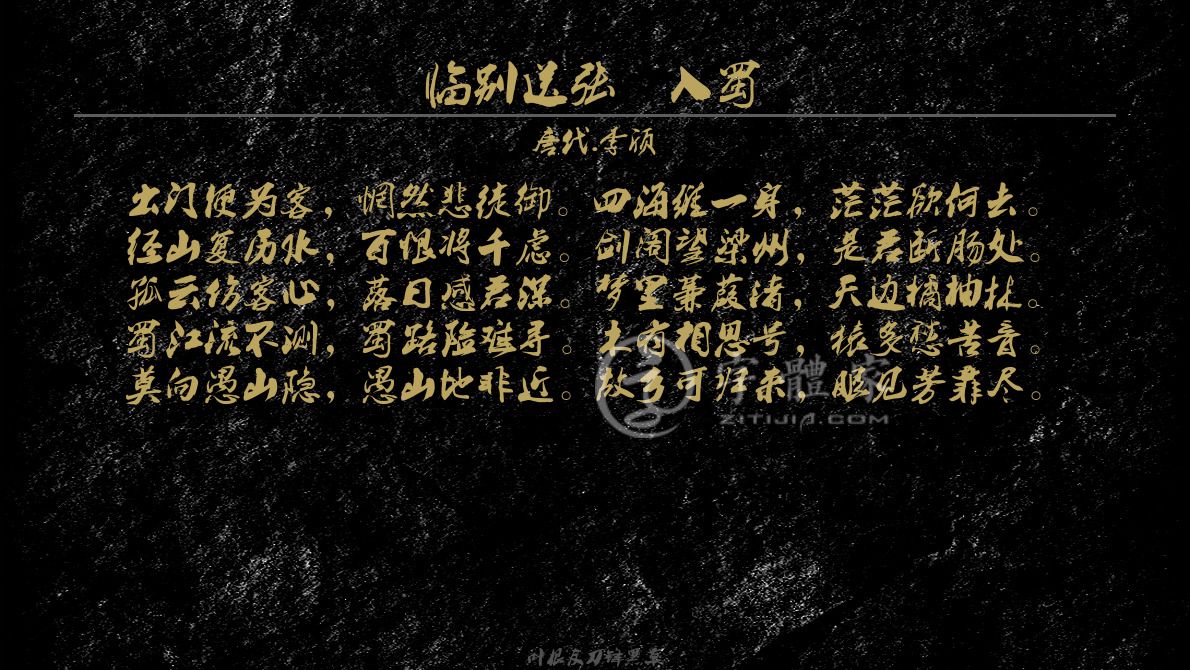 临别送张　入蜀
唐代.李颀
出门便为客，惘然悲徒御。四海维一身，茫茫欲何去。
经山复历水，百恨将千虑。剑阁望梁州，是君断肠处。
孤云伤客心，落日感君深。梦里蒹葭渚，天边橘柚林。
蜀江流不测，蜀路险难寻。木有相思号，猿多愁苦音。
莫向愚山隐，愚山地非近。故乡可归来，眼见芳菲尽。
字體家
ZITIJIA.COM
叶根友刀锋黑草